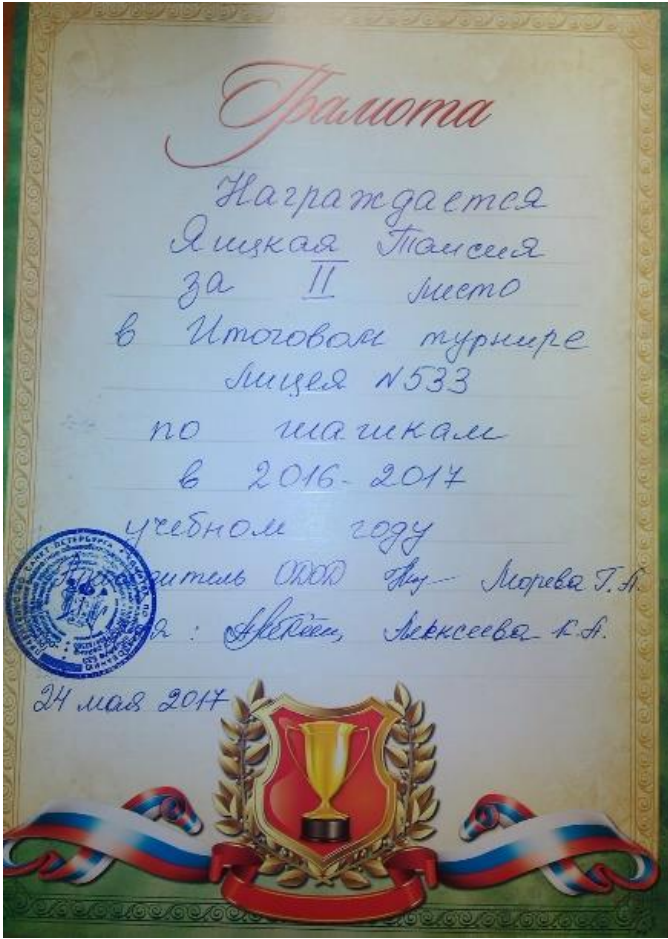 Грамота
Награждается
Яицкая Таисия
за II место
в Итоговом турнире
лицея №533
по шашкам
в 2016-2017
учебном году
Руководитель ОДОД Морева Г.А.
: Алексеева К.А.
24 мая 2017